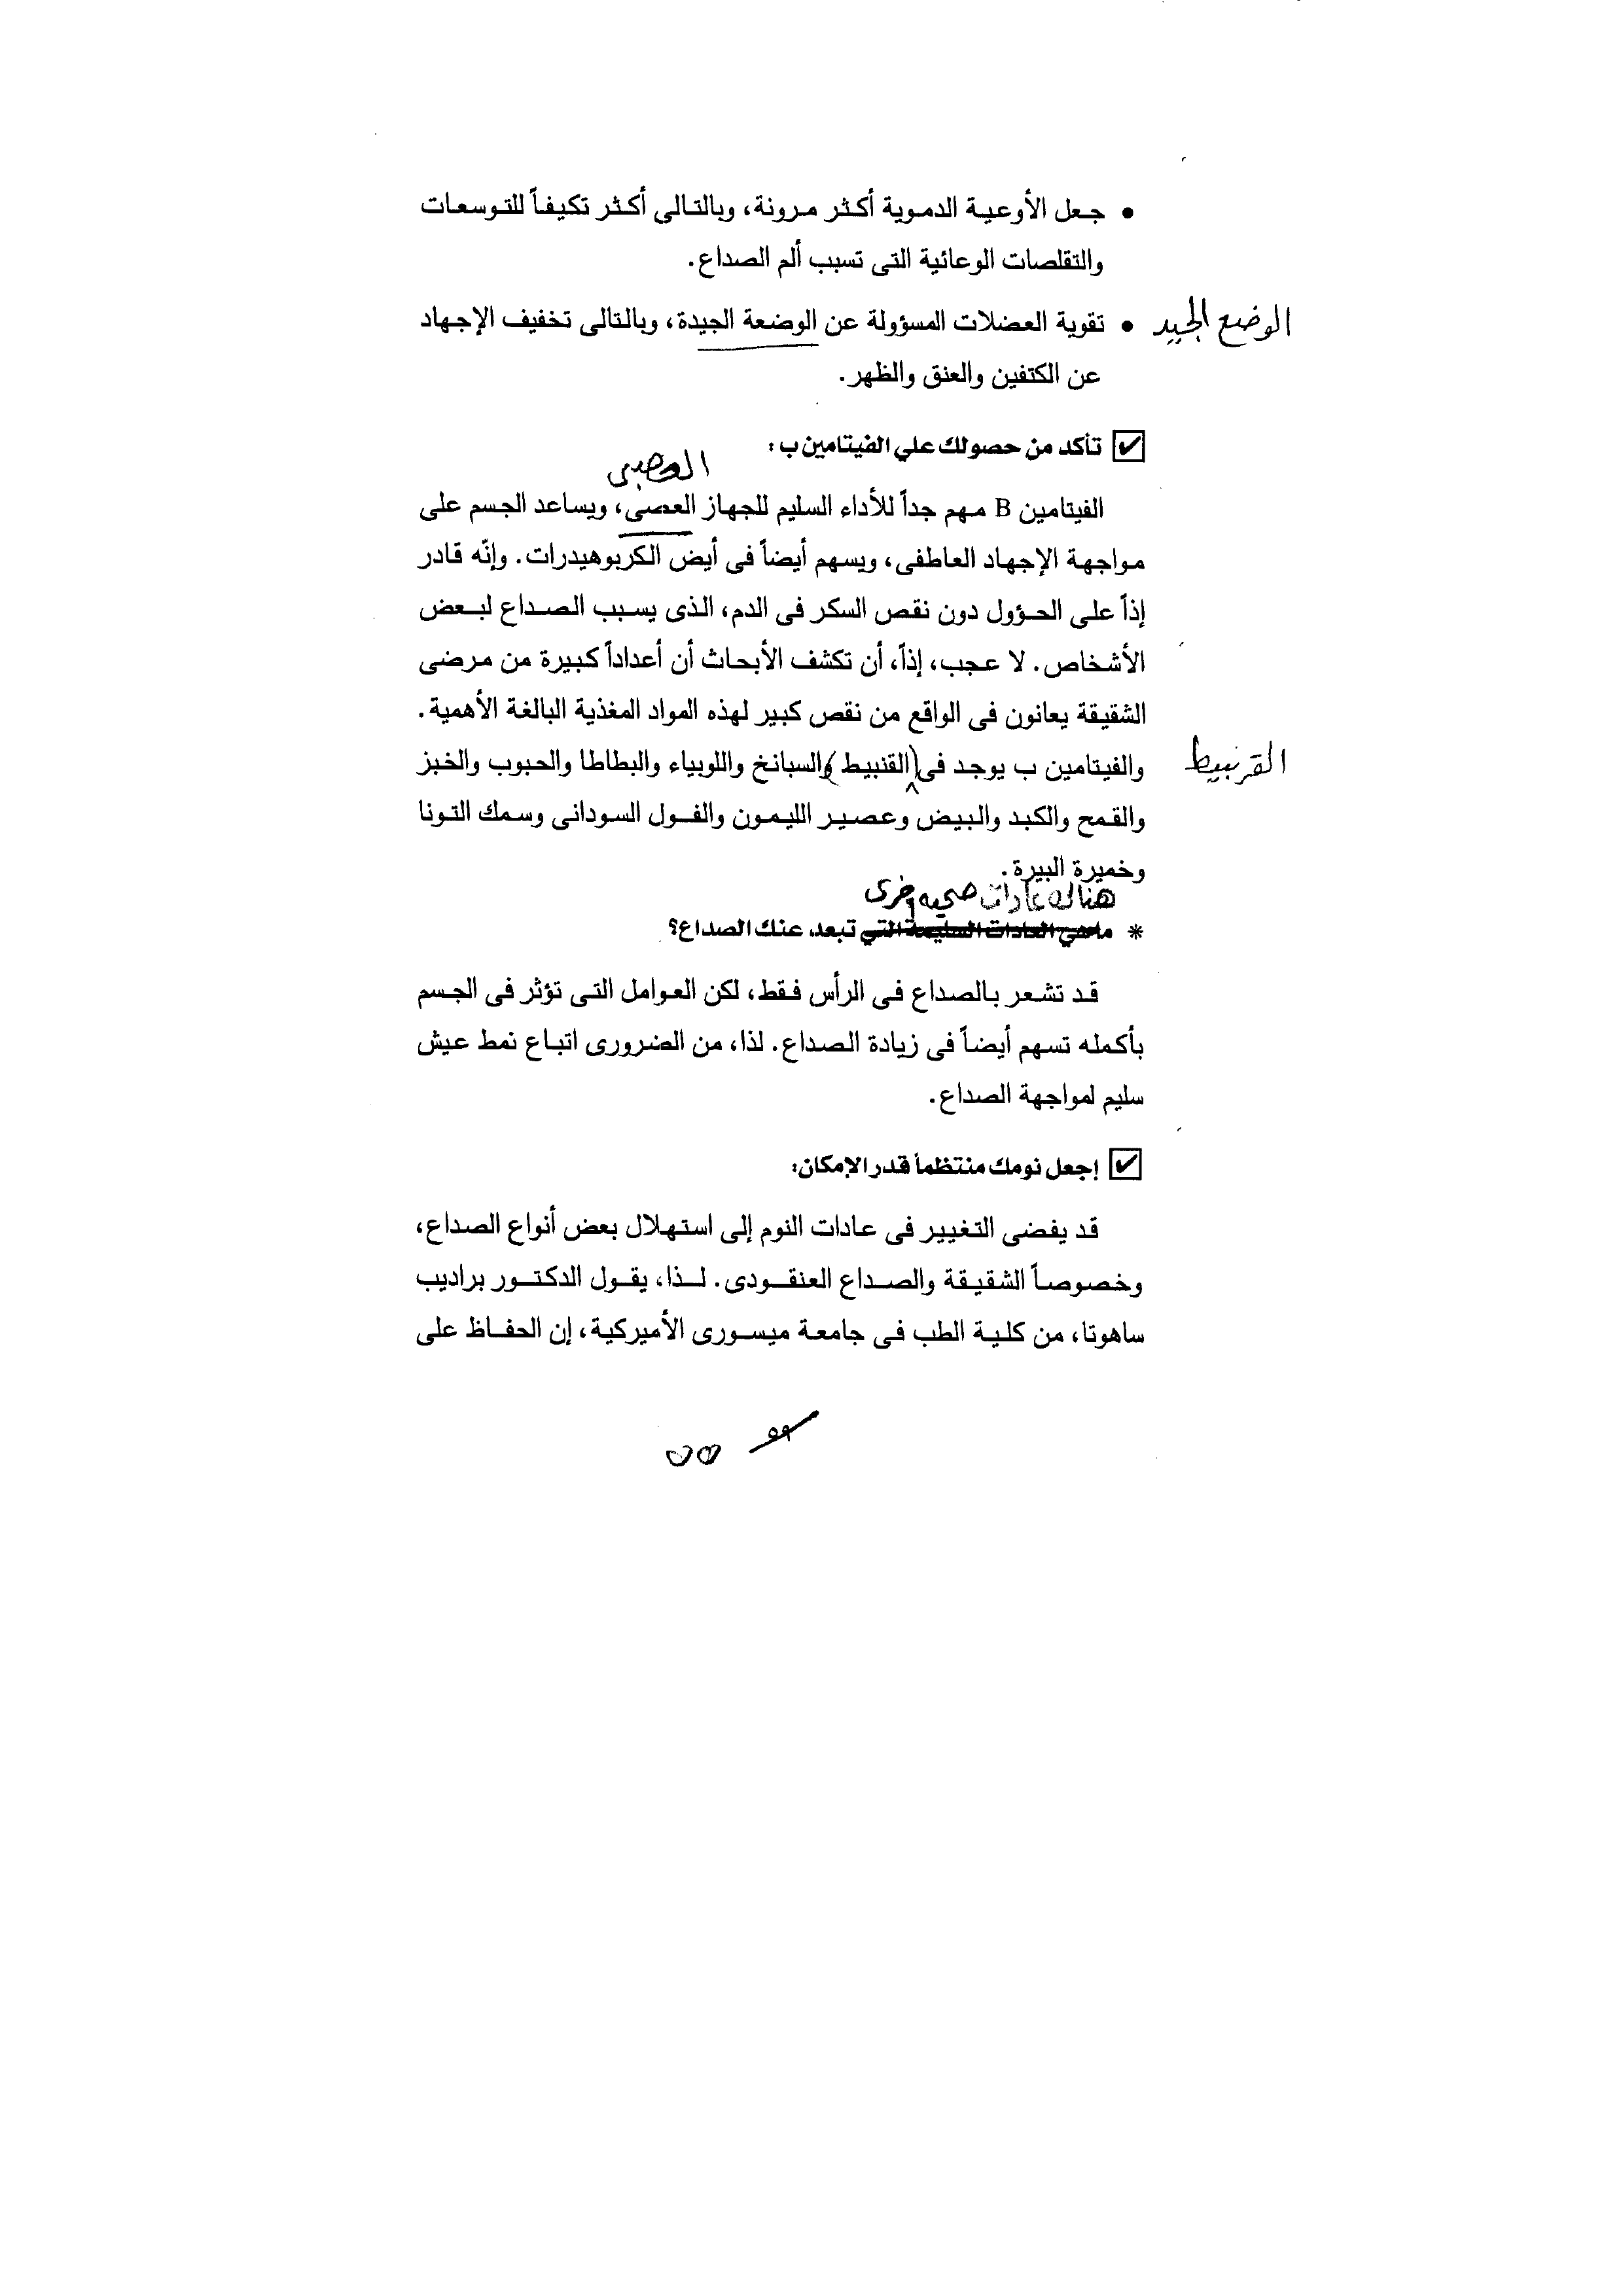 • جعل الأوعية الدموية أكثر مرونة، وبالتالى أكثر تكيفاً للتوسعات
والتقلصات الوعائية التى تسبب ألم الصداع.
الوضع الجيد
• تقوية العضلات المسؤولة عن الوضعة الجيدة، وبالتالى تخفيف الإجهاد
عن الكتفين والعنق والظهر.
☑ تأكد من حصولك علي الفيتامين ب:
العصبى
الفيتامين B مهم جداً للأداء السليم للجهاز العصى، ويساعد الجسم على
مواجهة الإجهاد العاطفى، ويسهم أيضاً فى أيض الكربوهيدرات. وإنّه قادر
إذاً على الحؤول دون نقص السكر فى الدم، الذى يسبب الصداع لبعض
الأشخاص. لا عجب، إذاً، أن تكشف الأبحاث أن أعداداً كبيرة من مرضى
الشقيقة يعانون فى الواقع من نقص كبير لهذه المواد المغذية البالغة الأهمية.
القرنبيط
والفيتامين ب يوجد فى (القنبيط) والسبانخ واللوبياء والبطاطا والحبوب والخبز
والقمح والكبد والبيض وعصير الليمون والفول السودانى وسمك التونا
وخميرة البيرة.
هناك عادات صحيه أخرى
* ماهي العادات السليمة التي تبعد عنك الصداع؟
قد تشعر بالصداع فى الرأس فقط، لكن العوامل التى تؤثر فى الجسم
بأكمله تسهم أيضاً فى زيادة الصداع. لذا، من الضرورى اتباع نمط عيش
سليم لمواجهة الصداع.
☑ إجعل نومك منتظماً قدر الإمكان:
قد يفضى التغيير فى عادات النوم إلى استهلال بعض أنواع الصداع،
وخصوصاً الشقيقة والصداع العنقودى. لذا، يقول الدكتور براديب
ساهوتا، من كلية الطب فى جامعة ميسورى الأميركية، إن الحفاظ على
٥٩